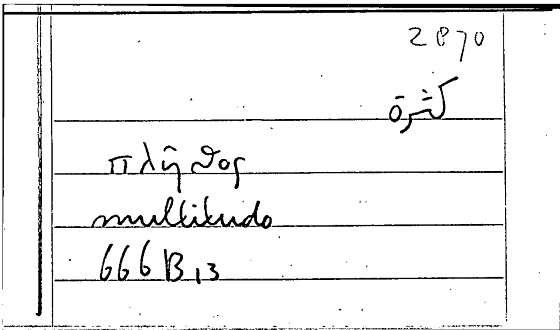 2870
كثرة
πλῆθος
multitudo
666 B,13